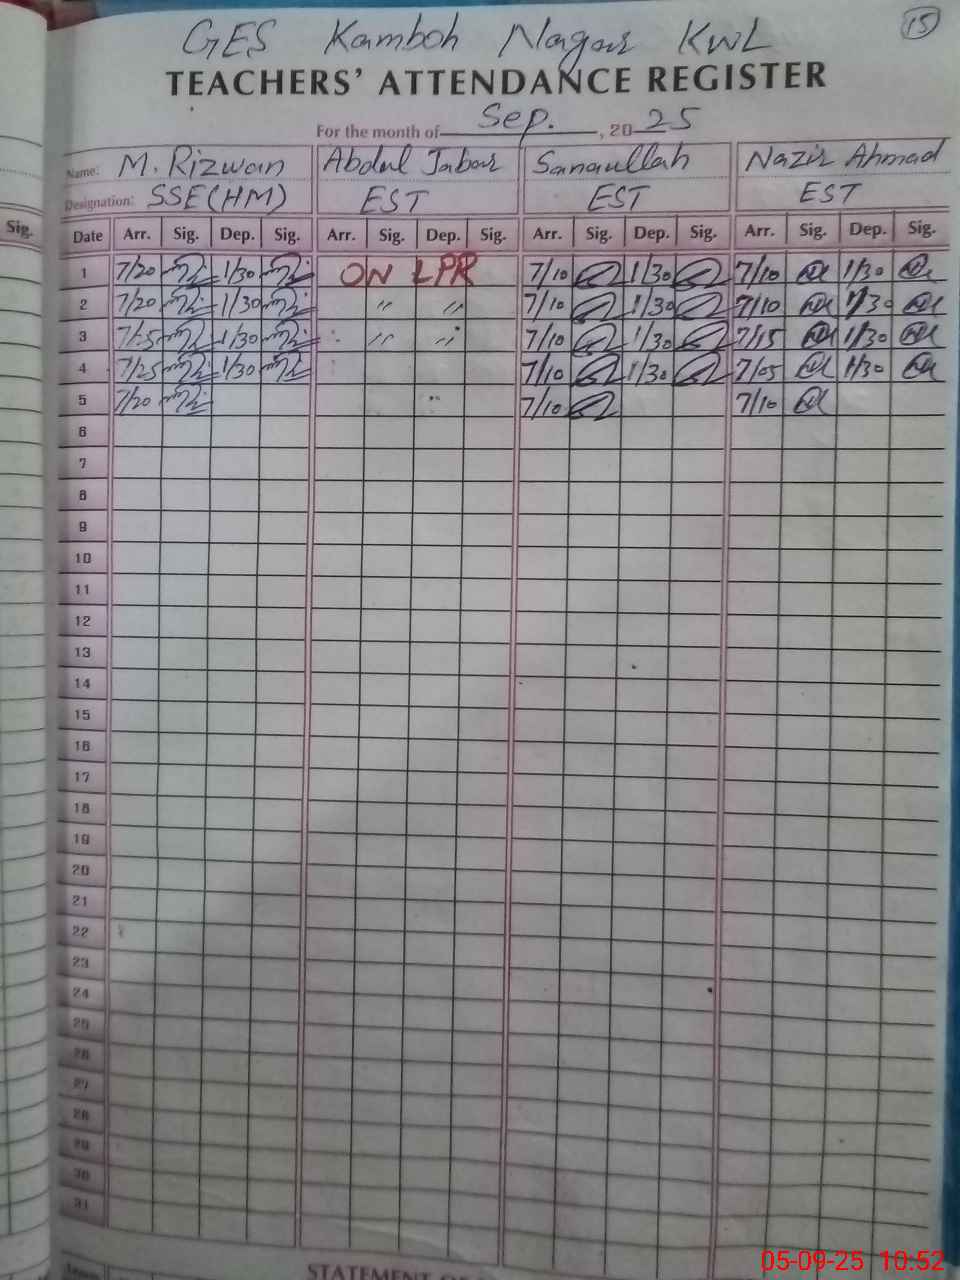 15
GES Kamboh Nagar KWL
TEACHERS' ATTENDANCE REGISTER
For the month of Sep. , 2025
Name: M. Rizwan Abdul Jabar Sanaullah Nazir Ahmad
Designation: SSE(HM) EST EST EST
Sig. Date Arr. Sig. Dep. Sig. Arr. Sig. Dep. Sig. Arr. Sig. Dep. Sig. Arr. Sig. Dep. Sig.
1 7/20 1/30 ON LPR 7/10 1/30 7/10 1/30
2 7/20 1/30 〃 〃 7/10 1/30 7/10 1/30
3 7/25 1/30 〃 〃 7/10 1/30 7/15 1/30
4 7/25 1/30 7/10 1/30 7/05 1/30
5 7/20 7/10 7/10
6
7
8
9
10
11
12
13
14
15
16
17
18
19
20
21
22
23
24
25
26
27
28
29
30
31
STATEMENT
05-09-25 10:52